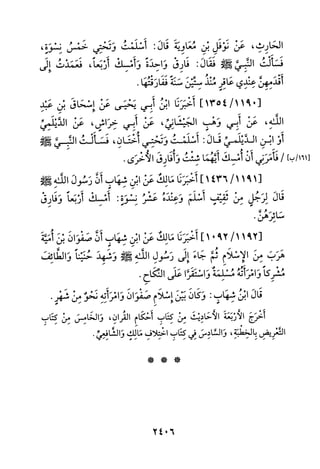 الحَارِثِ، عَنْ نَوْفَلِ بْنِ مُعَاوِيَةَ قَالَ: أَسْلَمْتُ وَتَحْتِي خَمْسُ نِسْوَةٍ،
فَسَأَلْتُ النَّبِيَّ ﷺ فَقَالَ: فَارِقْ وَاحِدَةً وَأَمْسِكْ أَرْبَعاً، فَعَمَدْتُ إِلَى
أَقْدَمِهِنَّ عِنْدِي عَاقِرٍ مُنْذُ سِتِّيْنَ سَنَةً فَفَارَقْتُهَا.
[١٣٥٤/١١٩٠] أَخْبَرَنَا ابْنُ أَبِي يَحْيَى عَنْ إِسْحَاقَ بْنِ عَبْدِ
اللَّهِ، عَنْ أَبِي وَهْبٍ الجَيْشَانِيِّ، عَنْ أَبِي خِرَاشٍ، عَنِ الدَّيْلَمِيِّ
أَوْ ابْنِ الدَّيْلَمِيِّ قَالَ: أَسْلَمْتُ وَتَحْتِي أُخْتَانِ، فَسَأَلْتُ النَّبِيَّ ﷺ
/ فَأَمَرَنِي أَنْ أُمْسِكَ أَيَّهُمَا شِئْتُ وَأُفَارِقَ الأُخْرَى. [١٦١/ب]
[١٤٣٦/١١٩١] أَخْبَرَنَا مَالِكٌ عَنْ ابْنِ شِهَابٍ أَنَّ رَسُولَ اللَّهِ ﷺ
قَالَ لِرَجُلٍ مِنْ ثَقِيْفٍ أَسْلَمَ وَعِنْدَهُ عَشْرُ نِسْوَةٍ: أَمْسِكْ أَرْبَعاً وَفَارِقْ
سَائِرَهُنَّ.
[١٠٩٢/١١٩٢] أَخْبَرَنَا مَالِكٌ عَنْ ابْنِ شِهَابٍ أَنَّ صَفْوَانَ بْنَ أُمَيَّةَ
هَرَبَ مِنَ الإِسْلَامِ ثُمَّ جَاءَ إِلَى رَسُولِ اللَّهِ ﷺ وَشَهِدَ حُنَيْناً وَالطَّائِفَ
مُشْرِكاً وَامْرَأَتُهُ مُسْلِمَةٌ وَاسْتَقَرَّا عَلَى النِّكَاحِ.
قَالَ ابْنُ شِهَابٍ: وَكَانَ بَيْنَ إِسْلَامِ صَفْوَانَ وَامْرَأَتِهِ نَحْوٌ مِنْ شَهْرٍ.
أَخْرَجَ الأَرْبَعَةَ الأَحَادِيْثَ مِنْ كِتَابِ أَحْكَامِ القُرآنِ، وَالخَامِسَ مِنْ كِتَابِ
التَّعْرِيضِ بِالخِطْبَةِ، وَالسَّادِسَ فِي كِتَابِ اخْتِلَافِ مَالِكٍ وَالشَّافِعِيِّ.
* * *
٢٤٠٦